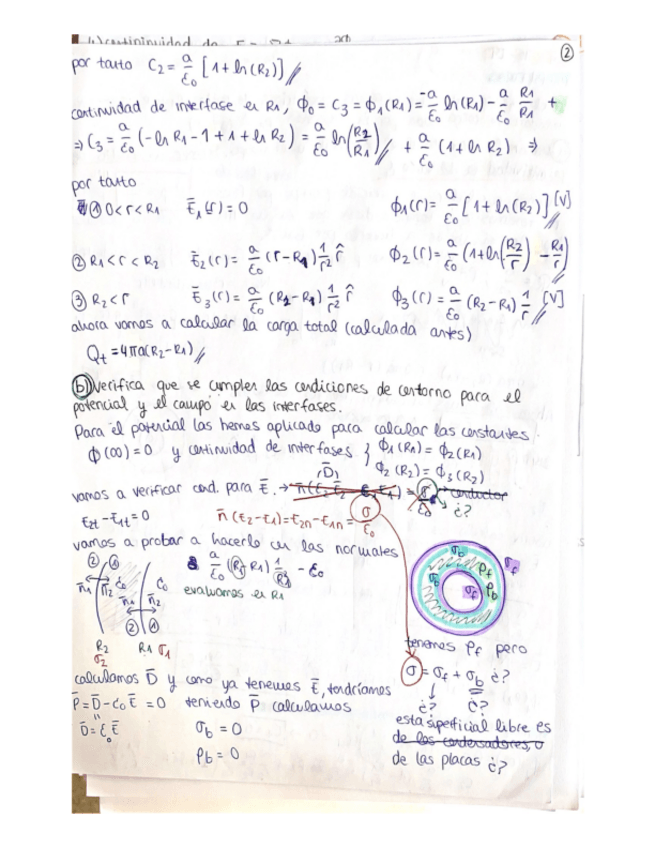 ②
por tanto C₂ = a/ε₀ [1 + ln(R₂)]
continuidad de interfase en R₁, ϕ₀ = C₃ = ϕ₁(R₁) = -a/ε₀ ln(R₁) - a/ε₀ R₁/R₁ +
⇒ C₃ = a/ε₀ (-ln R₁ - 1 + 1 + ln R₂) = a/ε₀ ln(R₂/R₁) + a/ε₀ (1 + ln R₂) ⇒
por tanto
① 0<r<R₁ Ē₁(r) = 0 ϕ₁(r) = a/ε₀ [1 + ln(R₂)] [V]
② R₁<r<R₂ Ē₂(r) = a/ε₀ (r-R₁) 1/r² r̂ ϕ₂(r) = a/ε₀ (1 + ln(R₂/r) - R₁/r)
③ R₂<r Ē₃(r) = a/ε₀ (R₂-R₁) 1/r² r̂ ϕ₃(r) = a/ε₀ (R₂-R₁) 1/r [V]
ahora vamos a calcular la carga total (calculada antes)
Qt = 4πa(R₂-R₁)
b) Verifica que se cumplen las condiciones de contorno para el
potencial y el campo en las interfases.
Para el potencial las hemos aplicado para calcular las constantes.
ϕ(∞) = 0 y continuidad de interfases } ϕ₁(R₁) = ϕ₂(R₁)
ϕ₂(R₂) = ϕ₃(R₂)
vamos a verificar cond. para Ē. → conductor
¿?
E₂t - E₁t = 0 n̄(Ē₂-Ē₁) = E₂n - E₁n = σ/ε₀
vamos a probar a hacerlo en las normales
a/ε₀ (R₁-R₁) 1/R₁² - ε₀
evaluamos en R₁
② ① n̄₁ n̄₂ ε₀ ε₀ n̄₁ n̄₂ ② ①
R₂ R₁ σ₁
σ₂
σb σf ρf σb ρb σf
tenemos ρf pero
σ = σf + σb ¿?
¿? ¿?
calculamos D̄ y como ya tenemos Ē, tendríamos
P̄ = D̄ - ε₀Ē = 0 teniendo P̄ calculamos
D̄ = ε₀Ē σb = 0
ρb = 0
esta superficial libre es
de los condensadores, o
de las placas ¿?